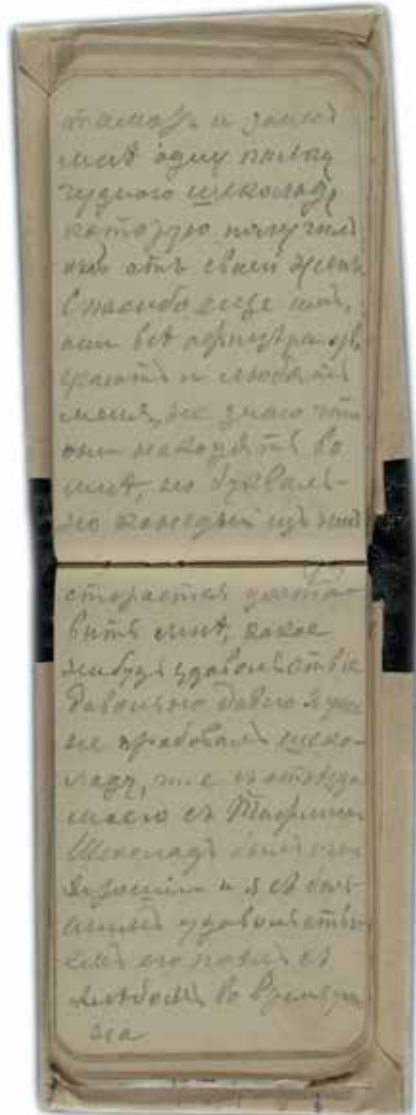 и
мнѣ одну палку
чуднаго шеколаду,
которую получилъ
онъ отъ своей жены
Спасибо еще
они всѣ офицера
и любятъ
меня, не знаю что
они находятъ во
мнѣ, но букваль-
но каждый изъ нихъ
старается доста-
вить мнѣ, какое
нибудь удовольствіе
Давольно давно я уже
не пробовалъ шеко-
ладу, т. е. съ отъѣзда
моего съ
Шеколадъ былъ очень
хорошій и я съ боль-
шимъ удовольстві-
емъ его съ
хлѣбомъ во время